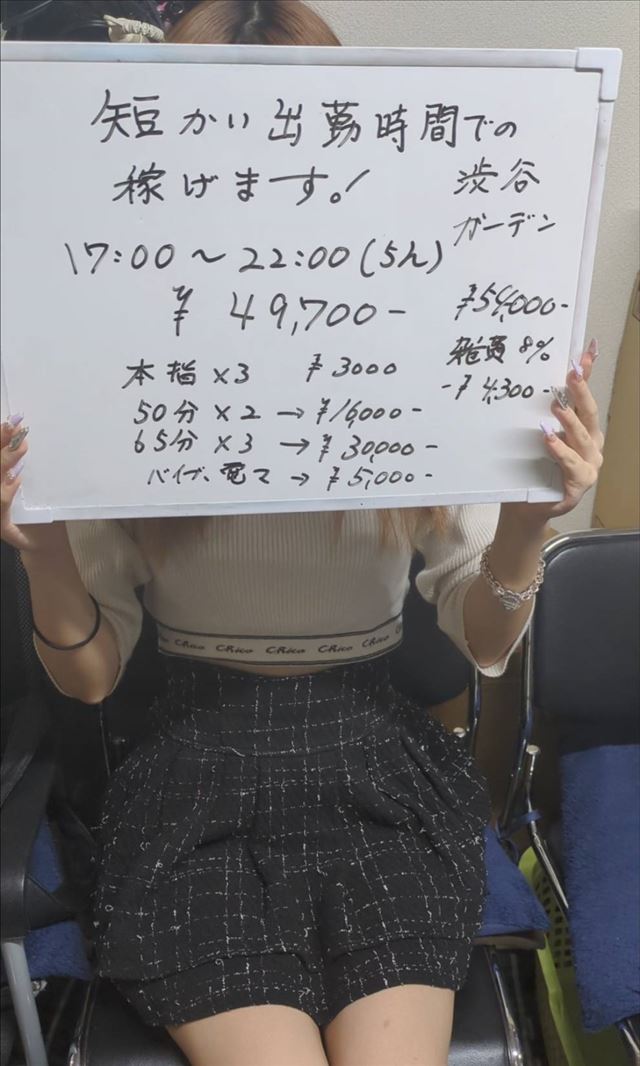 短かい出勤時間での
稼げます。!
渋谷
ガーデン
17:00〜22:00(5h)
¥49,700-
¥54,000-
雑費8%
-¥4,300-
本指×3 ¥3000
50分×2→¥16,000-
65分×3→¥30,000-
バイブ、電マ→¥5,000-
CRico CRico CRico CRico CRico